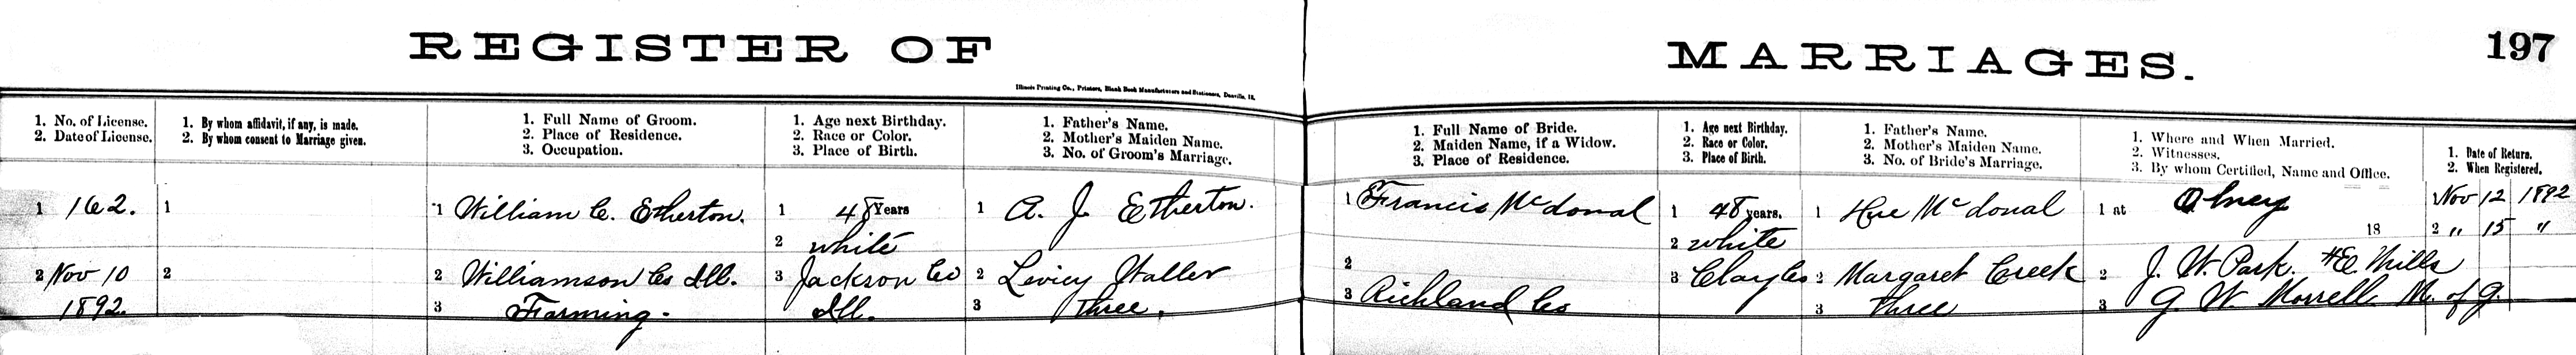 REGISTER OF MARRIAGES.
197
Illinois Printing Co., Printers, Blank Book Manufacturers and Stationers, Danville, Ill.
1. No. of License.
2. Date of License.
1. By whom affidavit, if any, is made.
2. By whom consent to Marriage given.
1. Full Name of Groom.
2. Place of Residence.
3. Occupation.
1. Age next Birthday.
2. Race or Color.
3. Place of Birth.
1. Father's Name.
2. Mother's Maiden Name.
3. No. of Groom's Marriage.
1. Full Name of Bride.
2. Maiden Name, if a Widow.
3. Place of Residence.
1. Age next Birthday.
2. Race or Color.
3. Place of Birth.
1. Father's Name.
2. Mother's Maiden Name.
3. No. of Bride's Marriage.
1. Where and When Married.
2. Witnesses.
3. By whom Certified, Name and Office.
1. Date of Return.
2. When Registered.
1 162.
2 Nov 10
1892.
1
2
1 William C. Etherton.
2 Williamson Co Ill.
3 Farming.
1 48 Years
2 white
3 Jackson Co
Ill.
1 A. J. Etherton.
2 Levicy Waller
3 Three.
1 Francis McDonal
2
3 Richland Co
1 48 years.
2 white
3 Clay Co
1 Hue McDonal
2 Margaret Creek
3 three
1 at Olney
18
2 J. W. Park. H E. Mills
3 G. W. Morrell M. of G.
Nov 12 1892
2 " 15 "